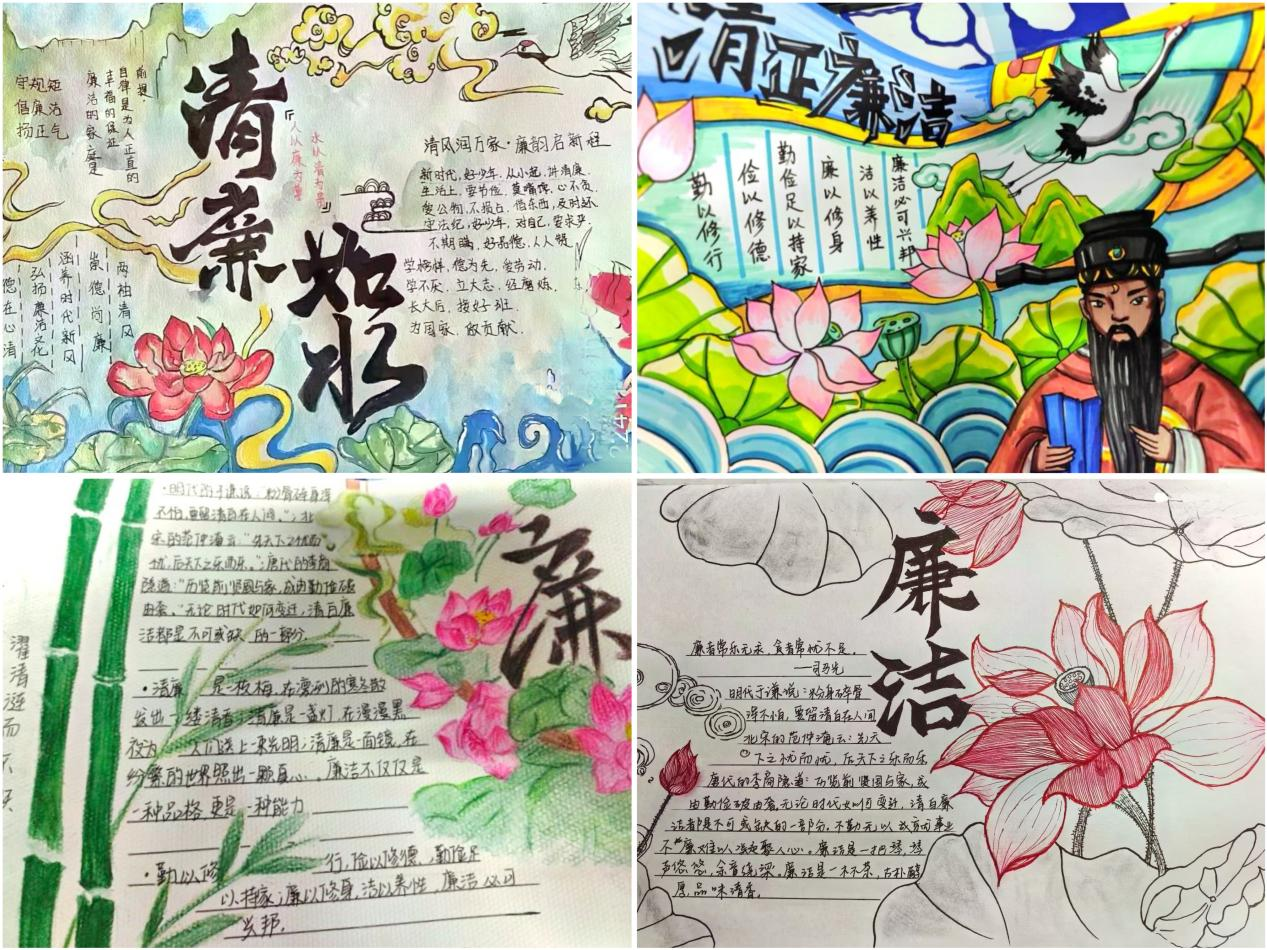 清廉
如水
守规矩
倡廉洁
扬正气
前提.
自律是为人正直的
幸福的保证
廉洁的家庭是
「人以廉为尊
水以清为贵」
清风润万家·廉韵启新程
新时代,好少年,从小起,讲清廉.
生活上,要节俭,莫嘴馋,心不贪.
爱公物,不损占,借东西,及时还
守法纪,好少年,对自己,要求严
不期瞒,好品德,人人赞
学榜样,德为先,爱劳动,
学不厌,立大志,经磨炼.
长大后,接好班.
为国家,做贡献.
两袖清风
崇德尚廉
涵养时代新风
弘扬廉洁文化
德在心清
清正廉洁
廉洁必可兴邦
洁以养性
廉以修身
勤俭足以持家
俭以修德
勤以修行
廉
·明代的于谦说:"粉骨碎身浑
不怕,要留清白在人间。";北
宋的范仲淹云:"先天下之忧而
忧,后天下之乐而乐。";唐代的李商
隐道:"历览前贤国与家,成由勤俭破
由奢。"无论时代如何变迁,清白廉
洁都是不可或缺 的一部分.
·清廉 是一枝梅,在凛冽的寒冬散
发出一缕清香;清廉是一盏灯,在漫漫黑
夜为 人们送上一束光明;清廉是一面镜,在
纷繁的世界照出一颗真心。廉洁不仅仅是
一种品格,更是一种能力
·勤以修 行,俭以修德,勤俭足
以持家;廉以修身,洁以养性,廉洁必可
兴邦.
濯清涟而不妖
廉洁
廉者常乐无求,贪者常忧不足。
——司马光
明代于谦说:粉身碎骨
浑不怕,要留清白在人间
北宋的范仲淹云:先天
下之忧而忧,后天下之乐而乐
唐代的李商隐道:历览前贤国与家,成
由勤俭破由奢,无论时代如何变迁,清白廉
洁都是不可或缺的一部分,不勤无以成齐家事业
不廉难以凝聚人心。廉洁是一把琴,琴
声悠悠,余音绕梁。廉洁是一杯茶,古朴醇
厚,品味清香。